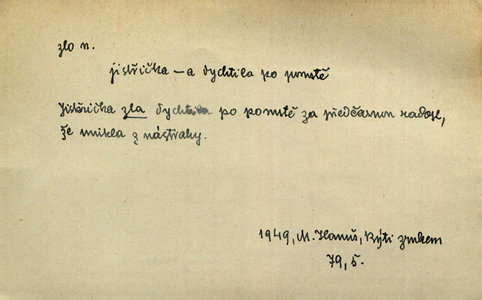 zlo n.
jistřička – a dychtila po pomstě
Jistřička zla dychtila po pomstě za předčasnou radost,
že unikla z nástrahy.
1949, M. Hanuš,
79, 5.